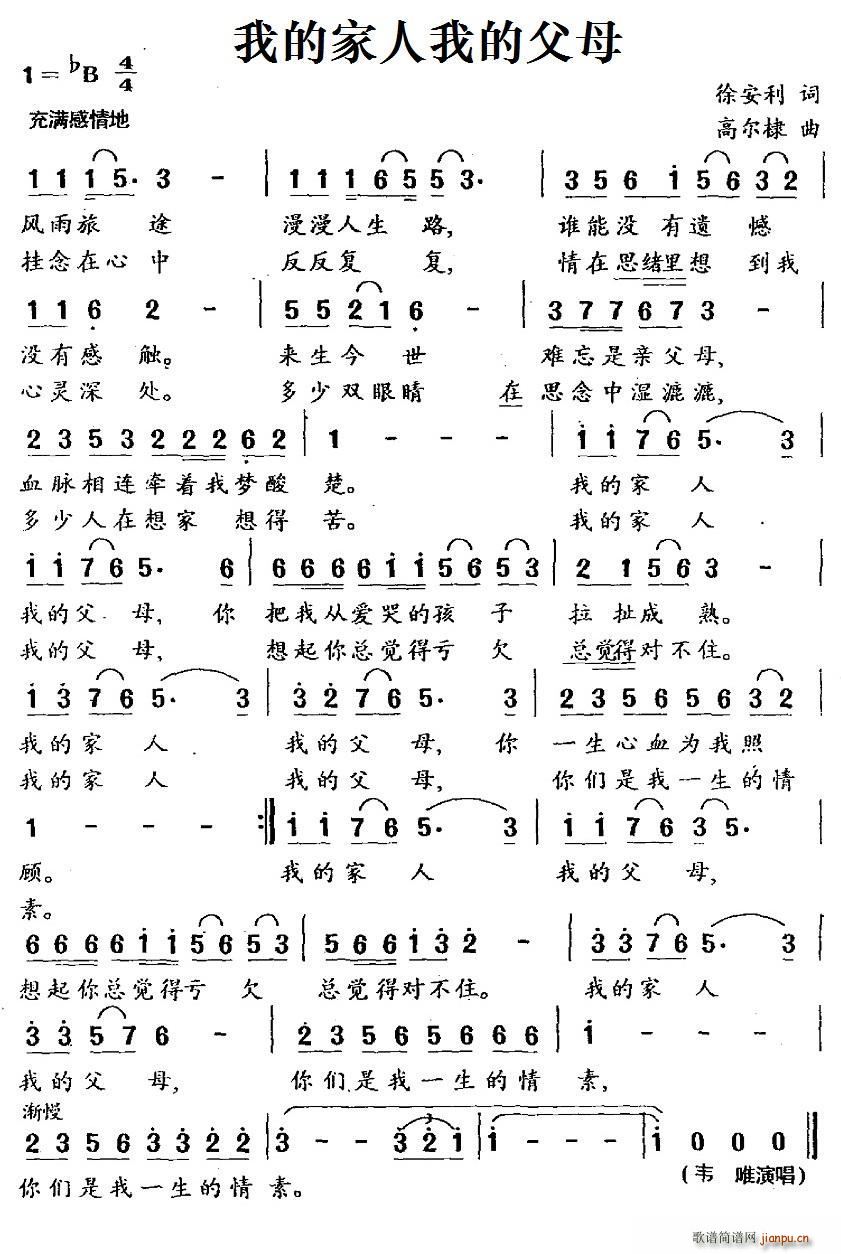 我的家人我的父母
1=♭B 4/4
徐安利 词
充满感情地
高尔棣 曲
1 1 1 5· 3 - | 1 1 1 6 5 5 3· | 3 5 6 i 5 6 3 2 |
风雨旅 途 漫漫人生 路, 谁能没 有遗 憾
挂念在心中 反反复 复, 情在思绪里想 到我
1 1 6 2 - | 5 5 2 1 6 - | 3 7 7 6 7 3 - |
没有感 触。 来生今 世 难忘是亲父母,
心灵深 处。 多少双眼睛 在思念中湿漉漉,
2 3 5 3 2 2 2 6 2 | 1 - - - | i i 7 6 5· 3 |
血脉相连牵着我梦酸 楚。 我的家 人
多少人在想家 想得 苦。 我的家 人
i i 7 6 5· 6 | 6 6 6 6 i i 5 6 5 3 | 2 1 5 6 3 - |
我的父 母, 你 把我从爱哭的孩 子 拉扯成 熟。
我的父 母, 想起你总觉得亏 欠 总觉得对不住。
i 3 7 6 5· 3 | 3 2 7 6 5· 3 | 2 3 5 6 5 6 3 2 |
我的家 人 我的父 母, 你 一生心血为我照
我的家 人 我的父 母, 你们是我一生的情
1 - - - :| i i 7 6 5· 3 | i i 7 6 3 5· |
顾。 我的家 人 我的父 母,
素。
6 6 6 6 i i 5 6 5 3 | 5 6 6 i 3 2 - | 3 3 7 6 5· 3 |
想起你总觉得亏 欠 总觉得对不住。 我的家 人
3 3 5 7 6 - | 2 3 5 6 5 6 6 6 | i - - - |
我的父 母, 你们是我一生的情 素,
渐慢
2 3 5 6 3 3 2 2 | 3 - - 3 2 i | i - - - | i 0 0 0 ‖
你们是我一生的情 素。
(韦 唯演唱)
歌谱简谱网 jianpu.cn